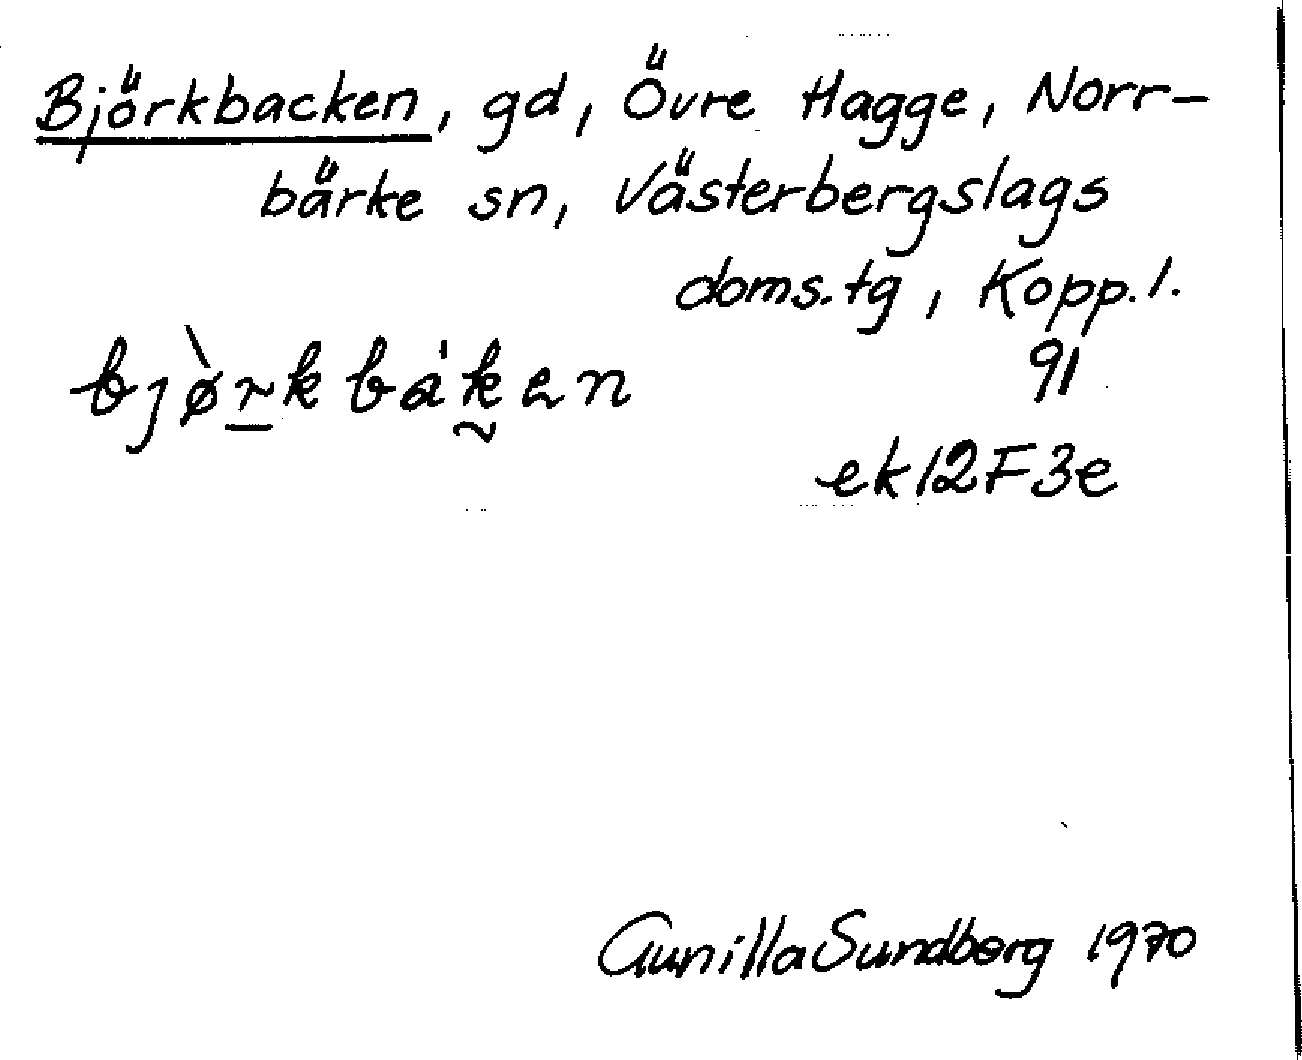 Björkbacken, gd, Övre Hagge, Norr-
bärke sn, Västerbergslags
doms.tg, Kopp.l.
bjø̀r̲kbák̰en
91
ek12F3e
Gunilla Sundberg 1970